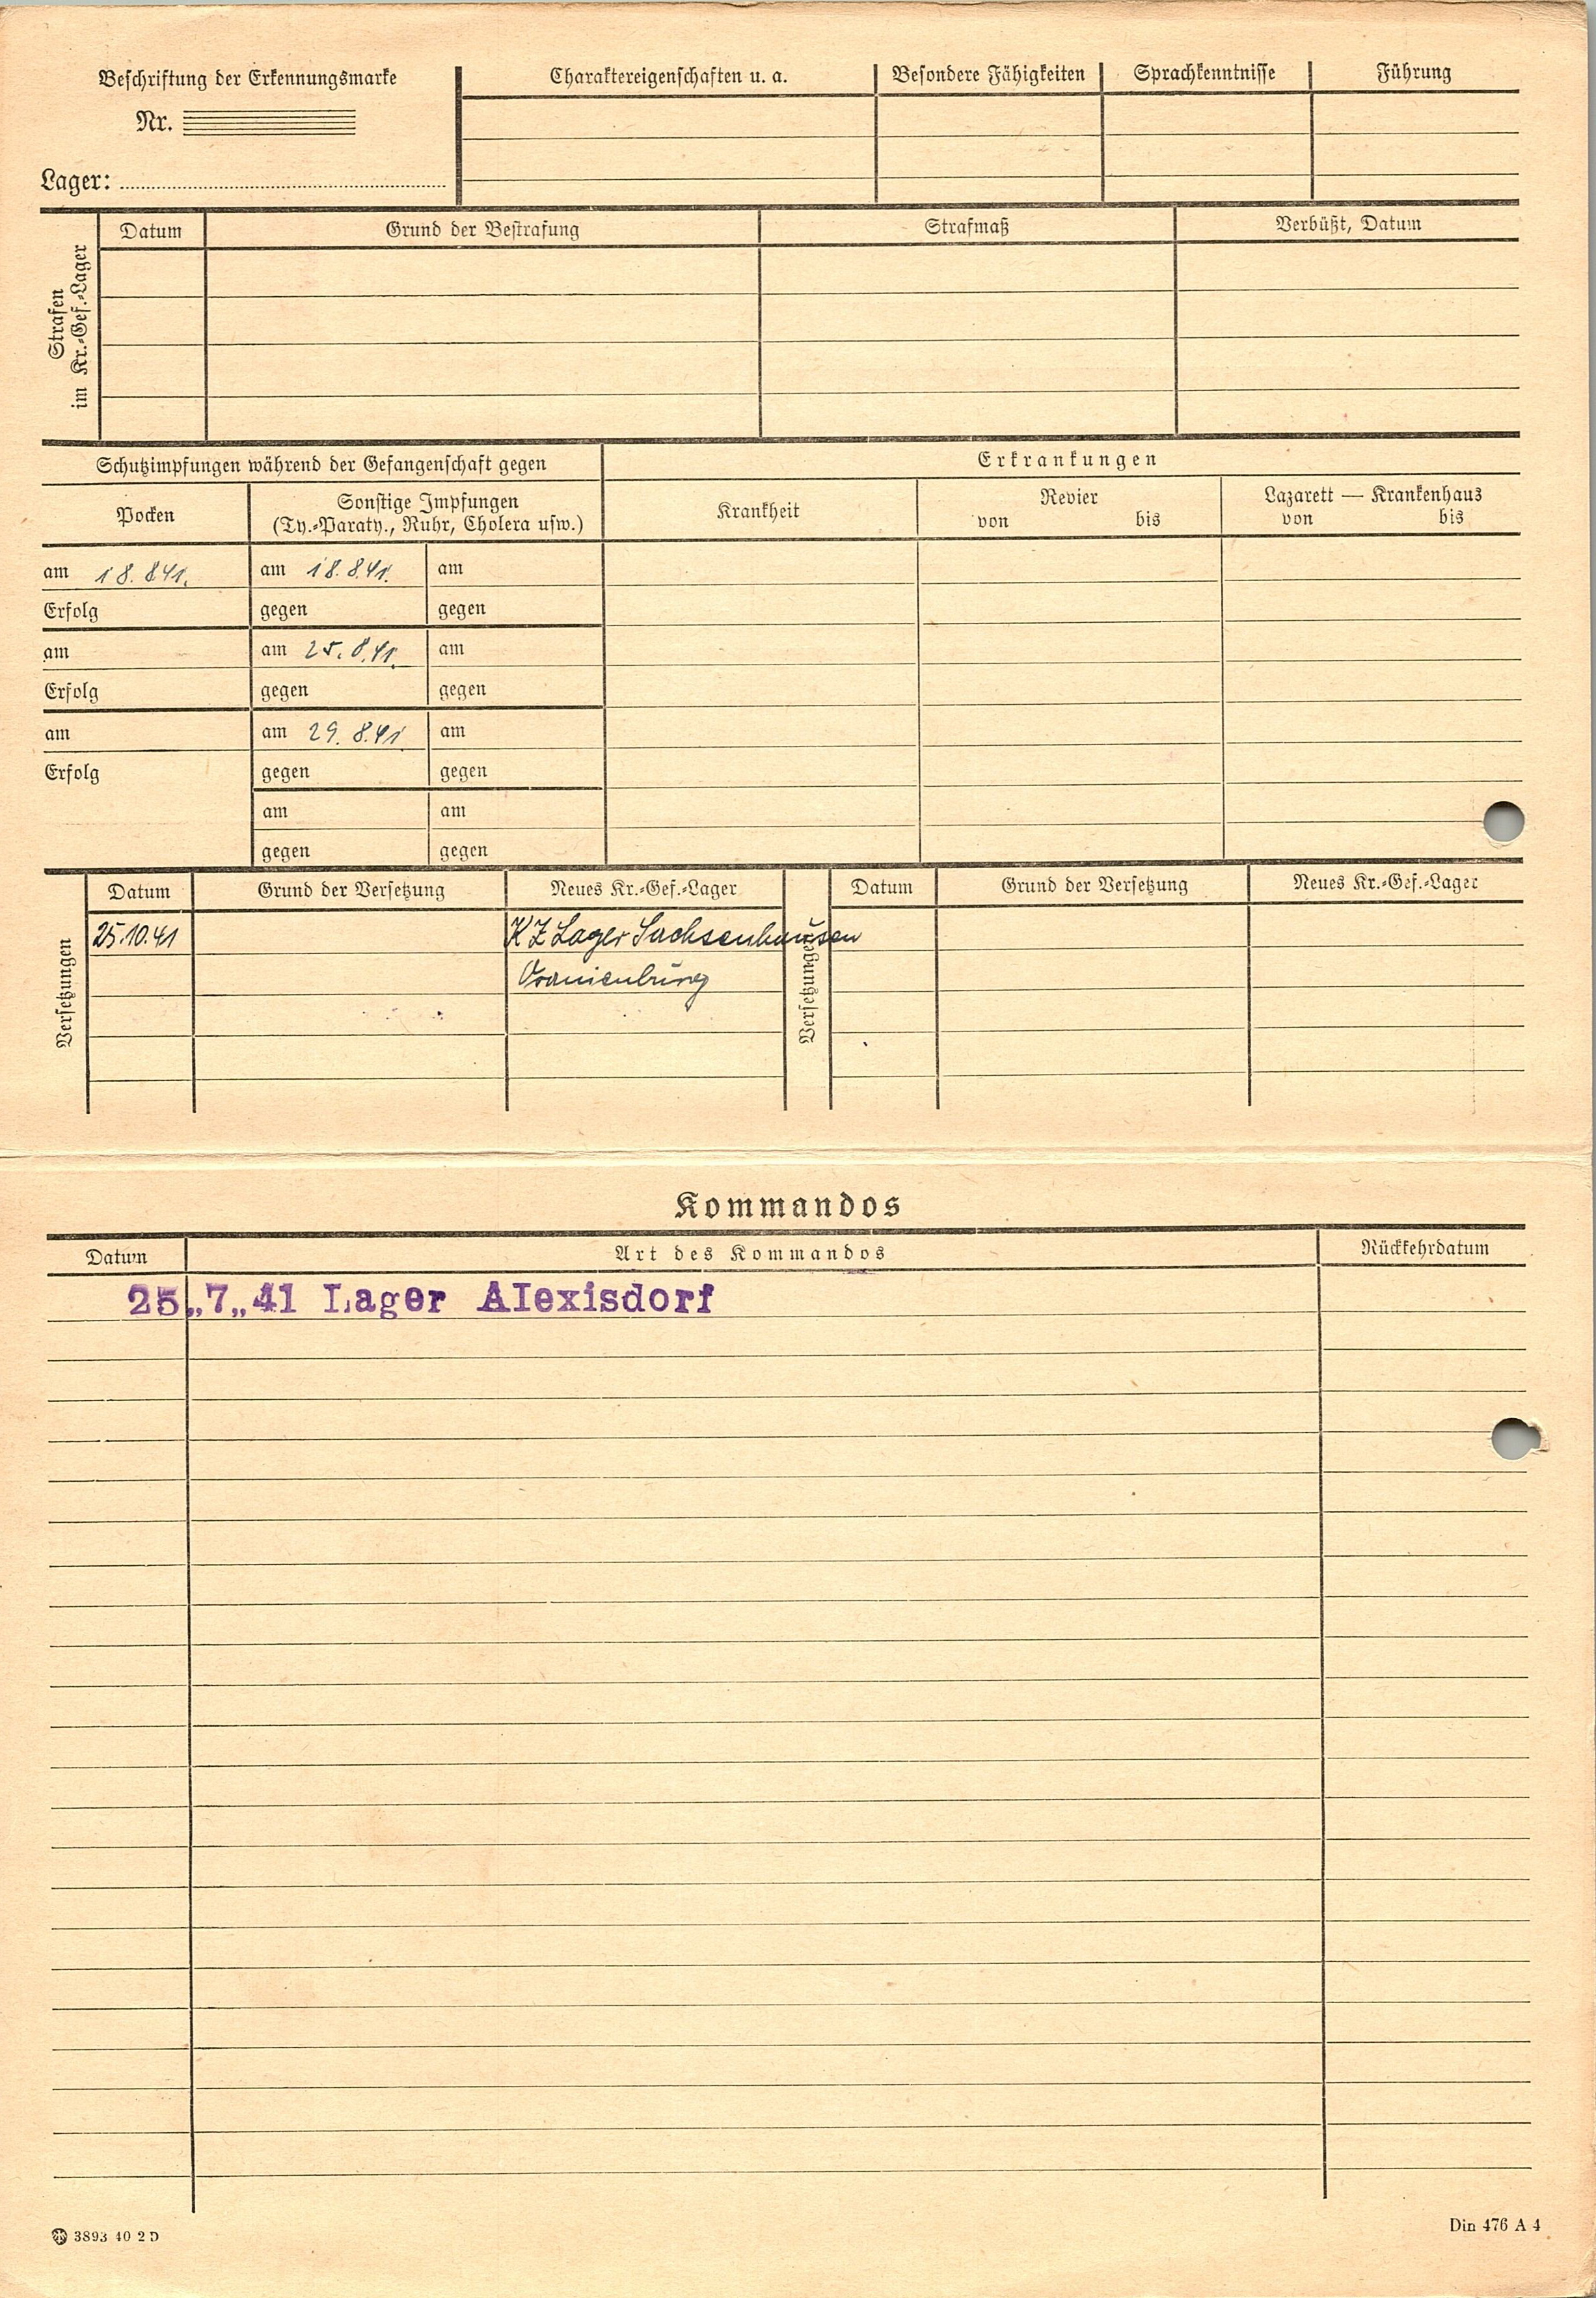 Beschriftung der Erkennungsmarke
Nr.
Lager:
Charaktereigenschaften u. a.
Besondere Fähigkeiten
Sprachkenntnisse
Führung
Strafen
im Kr.-Gef.-Lager
Datum
Grund der Bestrafung
Strafmaß
Verbüßt, Datum
Schutzimpfungen während der Gefangenschaft gegen
Pocken
Sonstige Impfungen
(Ty.-Paraty., Ruhr, Cholera usw.)
am 18.8.41. am 18.8.41. am
Erfolg gegen gegen
am am 25.8.41. am
Erfolg gegen gegen
am am 29.8.41. am
Erfolg gegen gegen
am am
gegen gegen
Erkrankungen
Krankheit
Revier
von bis
Lazarett — Krankenhaus
von bis
Versetzungen
Datum Grund der Versetzung Neues Kr.-Gef.-Lager
25.10.41 KZ Lager Sachsenhausen
Oranienburg
Versetzungen
Datum Grund der Versetzung Neues Kr.-Gef.-Lager
Kommandos
Datum Art des Kommandos Rückkehrdatum
25.„7„41 Lager Alexisdorf
3893 40 2 D
Din 476 A 4